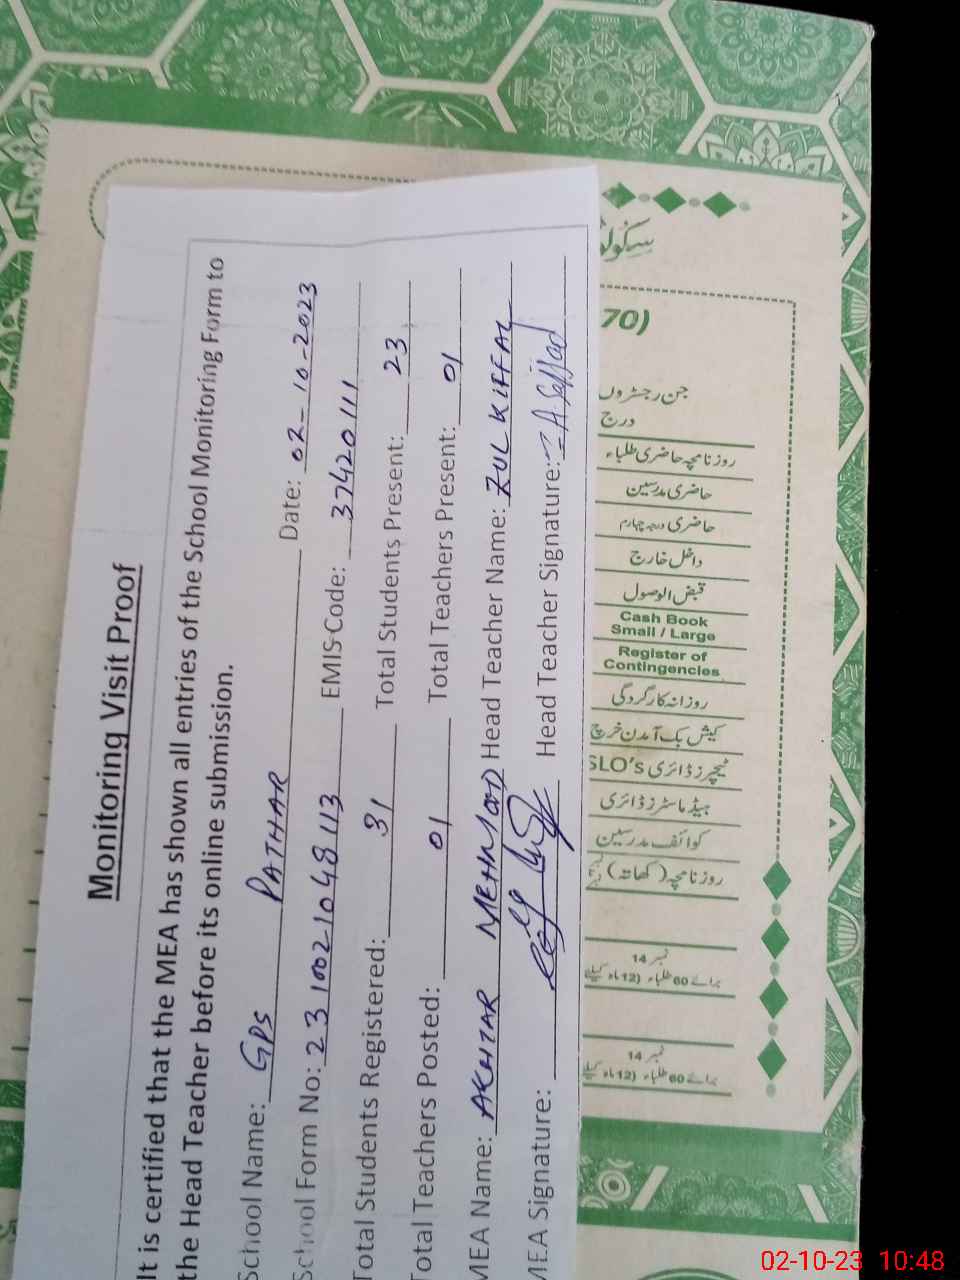 Monitoring Visit Proof
It is certified that the MEA has shown all entries of the School Monitoring Form to
the Head Teacher before its online submission.
School Name: GPS PATHAR Date: 02-10-2023
School Form No: 2310021048113 EMIS Code: 37420111
Total Students Registered: 31 Total Students Present: 23
Total Teachers Posted: 01 Total Teachers Present: 01
MEA Name: AKHTAR MEHMOOD Head Teacher Name: ZULKIFFAL
MEA Signature: Head Teacher Signature: A.Sajjad
70)
جن رجسٹروں
درج
روزنامچہ حاضری طلباء
حاضری مدرسین
حاضری درجہ چہارم
داخل خارج
قبض الوصول
Cash Book
Small / Large
Register of
Contingencies
روزانہ کارگردگی
کیش بک آمدن خرچ
ٹیچرز ڈائری SLO's
ہیڈ ماسٹرز ڈائری
کوائف مدرسین
روزنامچہ (کھاتہ)
نمبر 14
برائے 60 طلباء (12 ماہ کیلئے
نمبر 14
برائے 60 طلباء (12 ماہ کیلئے
02-10-23 10:48